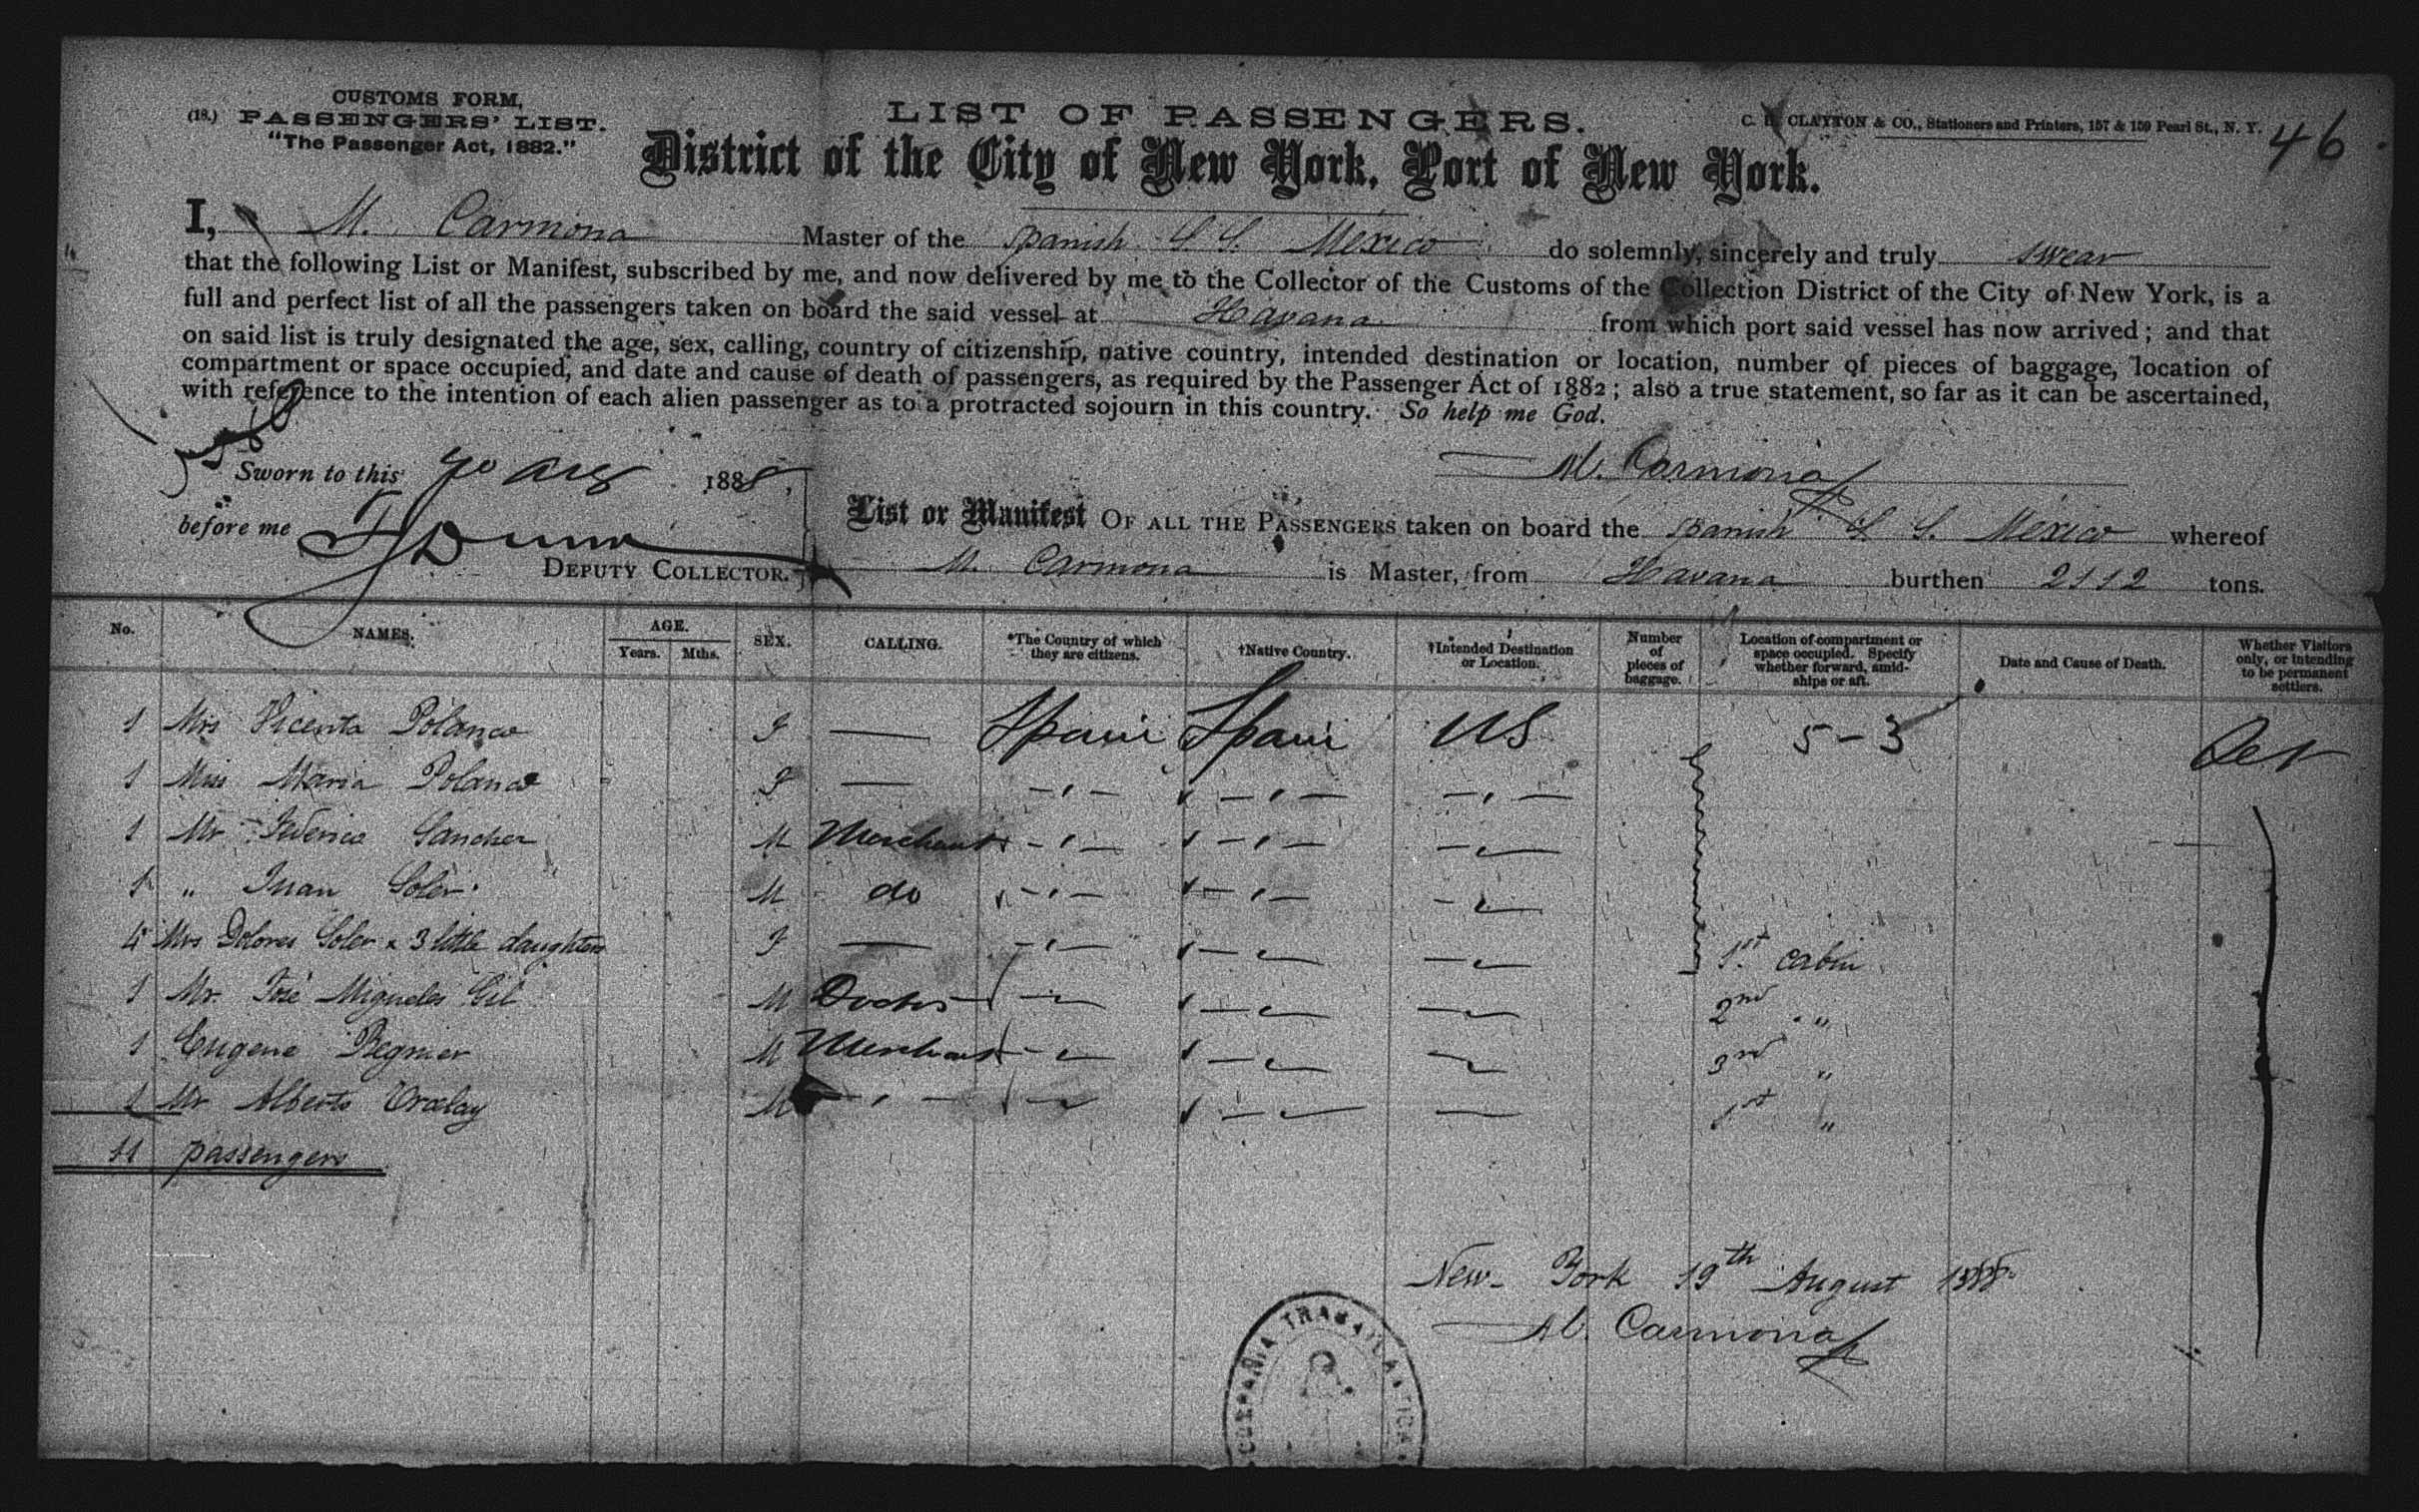 CUSTOMS FORM,
(18.) PASSENGERS' LIST.
"The Passenger Act, 1882."
LIST OF PASSENGERS.
C. CLAYTON & CO., Stationers and Printers, 157 & 159 Pearl St., N. Y.
46
District of the City of New York, Port of New York.
I, M. Carmona Master of the Spanish S S. Mexico do solemnly, sincerely and truly swear
that the following List or Manifest, subscribed by me, and now delivered by me to the Collector of the Customs of the Collection District of the City of New York, is a
full and perfect list of all the passengers taken on board the said vessel at Havana from which port said vessel has now arrived; and that
on said list is truly designated the age, sex, calling, country of citizenship, native country, intended destination or location, number of pieces of baggage, location of
compartment or space occupied, and date and cause of death of passengers, as required by the Passenger Act of 1882; also a true statement, so far as it can be ascertained,
with reference to the intention of each alien passenger as to a protracted sojourn in this country. So help me God.
M. Carmona
Sworn to this Aug 1888,
before me
DEPUTY COLLECTOR.
List or Manifest OF ALL THE PASSENGERS taken on board the Spanish S S. Mexico whereof
M. Carmona is Master, from Havana burthen 2112 tons.
No. NAMES. AGE. Years. Mths. SEX. CALLING. *The Country of which they are citizens. †Native Country. †Intended Destination or Location. Number of pieces of baggage. Location of compartment or space occupied. Specify whether forward, amidships or aft. Date and Cause of Death. Whether Visitors only, or intending to be permanent settlers.
1 Mrs Vicenta Polanco F — Spain Spain US 5-3
1 Miss Maria Polanco F — -"- -"- -"-
1 Mr Federico Sanchez M Merchant -"- -"- -"-
1 " Juan Soler M do -"- -"- -"-
4 Mrs Dolores Soler & 3 little daughters F — -"- -"- -"- 1st cabin
1 Mr. José Migueles Gil M Doctor -"- -"- -"- 2nd "
1 Eugene Regnier M Merchant -"- -"- -"- 3rd "
1 Mr Alberto M -"- -"- -"- — 1st "
11 passengers
New-York 19th August 1888
M. Carmona
COMPAÑIA TRASATLANTICA